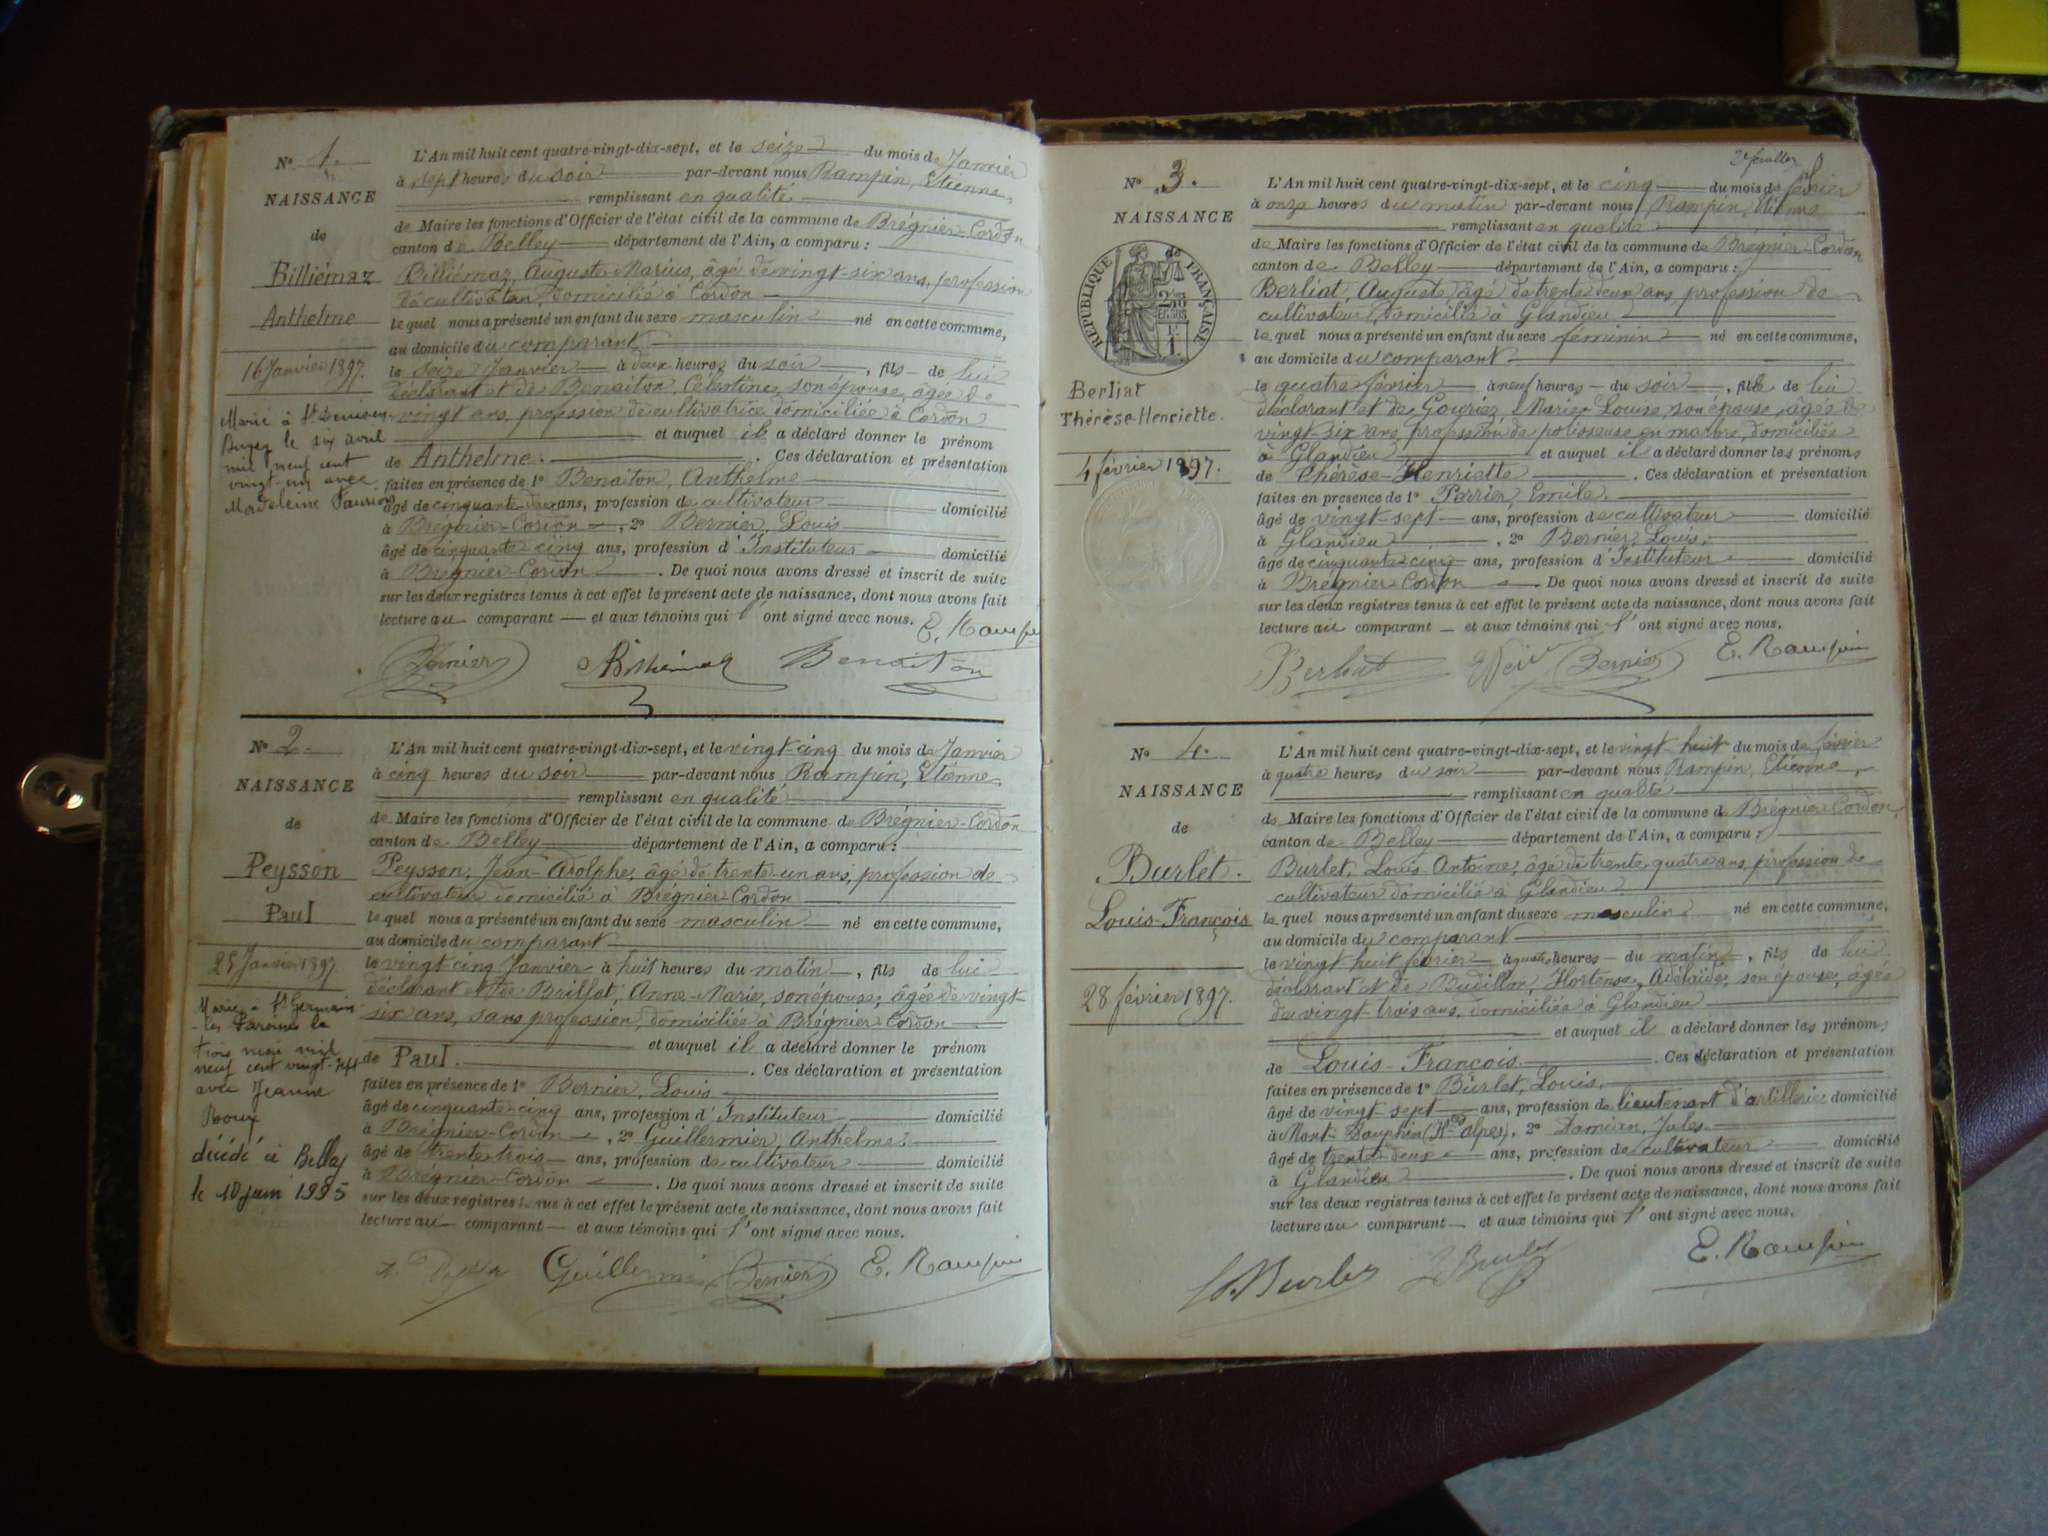 Nº 1.
NAISSANCE
de
Billiémaz
Anthelme
16 Janvier 1897.
Marié à St
le six avril
mil neuf cent
vingt-un avec
Madeleine
L'An mil huit cent quatre-vingt-dix-sept, et le seize du mois de Janvier
à sept heures du soir par-devant nous Rampin, Etienne,
remplissant en qualité
de Maire les fonctions d'Officier de l'état civil de la commune de Brégnier-Cordon
canton de Belley département de l'Ain, a comparu :
Billiémaz, Auguste-Marius, âgé de vingt-six ans, profession
de cultivateur, domicilié à Cordon
le quel nous a présenté un enfant du sexe masculin né en cette commune,
au domicile du comparant
le seize Janvier à deux heures du soir, fils de lui
déclarant et de Benaiton, Célestine, son épouse, âgée de
vingt ans, profession de cultivatrice domiciliée à Cordon
et auquel il a déclaré donner le prénom
de Anthelme. Ces déclaration et présentation
faites en présence de 1º Benaiton, Anthelme
âgé de cinquante-deux ans, profession de cultivateur domicilié
à Brégnier-Cordon, 2º Bernier, Louis
âgé de cinquante cinq ans, profession d'Instituteur domicilié
à Brégnier-Cordon. De quoi nous avons dressé et inscrit de suite
sur les deux registres tenus à cet effet le présent acte de naissance, dont nous avons fait
lecture au comparant et aux témoins qui l'ont signé avec nous. E. Rampin
Bernier Billiémaz Benaiton
Nº 2.
NAISSANCE
de
Peysson
Paul
25 Janvier 1897
Marié à St Germain
les Paroisses le
trois mai mil
neuf cent vingt-
avec Jeanne
Roux
décédé à Belley
le 10 juin 1985
L'An mil huit cent quatre-vingt-dix-sept, et le vingt-cinq du mois de Janvier
à cinq heures du soir par-devant nous Rampin, Etienne,
remplissant en qualité
de Maire les fonctions d'Officier de l'état civil de la commune de Brégnier-Cordon
canton de Belley département de l'Ain, a comparu :
Peysson, Jean-Adolphe, âgé de trente-un ans, profession de
cultivateur domicilié à Brégnier-Cordon
le quel nous a présenté un enfant du sexe masculin né en cette commune,
au domicile du comparant
le vingt-cinq Janvier à huit heures du matin, fils de lui
déclarant et de Brillat, Anne-Marie, son épouse, âgée de vingt-
six ans, sans profession, domiciliée à Brégnier-Cordon
et auquel il a déclaré donner le prénom
de Paul. Ces déclaration et présentation
faites en présence de 1º Bernier, Louis
âgé de cinquante-cinq ans, profession d'Instituteur domicilié
à Brégnier-Cordon, 2º Guillermier, Anthelme
âgé de trente-trois ans, profession de cultivateur domicilié
à Brégnier-Cordon. De quoi nous avons dressé et inscrit de suite
sur les deux registres tenus à cet effet le présent acte de naissance, dont nous avons fait
lecture au comparant et aux témoins qui l'ont signé avec nous.
Guillermier Bernier E. Rampin
2e feuillet
Nº 3.
NAISSANCE
de
RÉPUBLIQUE FRANÇAISE
Berliat
Thérèse-Henriette.
4 février 1897.
L'An mil huit cent quatre-vingt-dix-sept, et le cinq du mois de février
à onze heures du matin par-devant nous Rampin, Etienne
remplissant en qualité
de Maire les fonctions d'Officier de l'état civil de la commune de Brégnier-Cordon
canton de Belley département de l'Ain, a comparu :
Berliat, Auguste, âgé de trente-deux ans, profession de
cultivateur, domicilié à Glandieu
le quel nous a présenté un enfant du sexe féminin né en cette commune,
au domicile du comparant
le quatre février à neuf heures du soir, fille de lui
déclarant et de Gouriez, Marie-Louise, son épouse, âgée de
vingt-six ans, profession de polisseuse en marbre, domiciliée
à Glandieu et auquel il a déclaré donner les prénoms
de Thérèse-Henriette. Ces déclaration et présentation
faites en présence de 1º Perrier, Emile.
âgé de vingt-sept ans, profession de cultivateur domicilié
à Glandieu, 2º Bernier, Louis.
âgé de cinquante-cinq ans, profession d'Instituteur domicilié
à Brégnier-Cordon. De quoi nous avons dressé et inscrit de suite
sur les deux registres tenus à cet effet le présent acte de naissance, dont nous avons fait
lecture au comparant et aux témoins qui l'ont signé avec nous.
Berliat Bernier E. Rampin
Nº 4.
NAISSANCE
de
Burlet.
Louis-François
28 février 1897.
L'An mil huit cent quatre-vingt-dix-sept, et le vingt-huit du mois de février
à quatre heures du soir par-devant nous Rampin, Etienne,
remplissant en qualité
de Maire les fonctions d'Officier de l'état civil de la commune de Brégnier-Cordon,
canton de Belley département de l'Ain, a comparu :
Burlet, Louis-Antoine, âgé de trente-quatre ans, profession de
cultivateur domicilié à Glandieu
le quel nous a présenté un enfant du sexe masculin né en cette commune,
au domicile du comparant
le vingt huit février à quatre heures du matin, fils de lui
déclarant et de Budillon, Hortense, Adélaïde, son épouse, âgée
de vingt-trois ans, domiciliée à Glandieu
et auquel il a déclaré donner les prénoms
de Louis-François. Ces déclaration et présentation
faites en présence de 1º Burlet, Louis,
âgé de vingt-sept ans, profession de lieutenant d'artillerie domicilié
à Mont-Dauphin (Htes alpes), 2º Damian, Jules
âgé de trente-deux ans, profession de cultivateur domicilié
à Glandieu. De quoi nous avons dressé et inscrit de suite
sur les deux registres tenus à cet effet le présent acte de naissance, dont nous avons fait
lecture au comparant et aux témoins qui l'ont signé avec nous.
Burlet Burlet E. Rampin